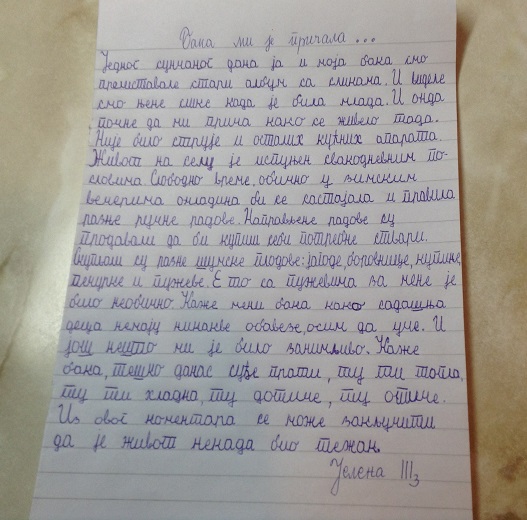 Бака ми је причала...
Једног сунчаног дана ја и моја бака смо
прелиставале стари албум са сликама. И виделе
смо њене слике када је била млада. И онда
почне да ми прича како се живело тада.
Није било струје и осталих кућних апарата.
Живот на селу је испуњен свакодневним по-
словима. Слободно време, обично у зимским
вечерима омладина би се састајала и правила
разне ручне радове. Направљене радове су
продавали да би купили себи потребне ствари.
Скупљали су разне шумске плодове: јагоде, боровнице, купине,
печурке и пужеве. Е то са пужевима за мене је
било необично. Каже мени бака како садашња
деца немају никакве обавезе, осим да уче. И
још нешто ми је било занимљиво. Каже
бака, тешко данас суђе прати, ту ти топла,
ту ти хладна, ту дотиче, ту отиче.
Из овог коментара се може закључити
да је живот некада био тежак.
Јелена III3